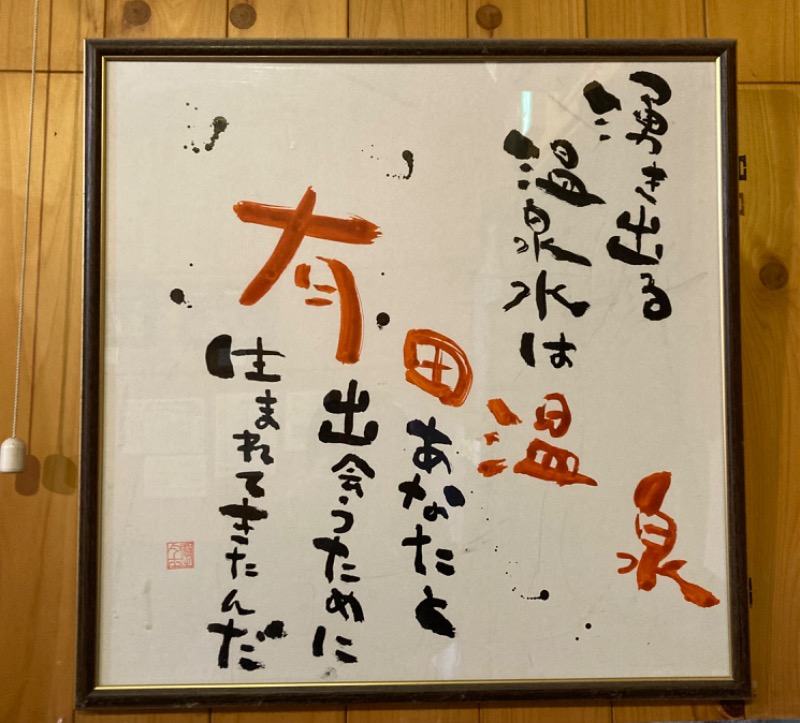 湧き出る
温泉水は
あなたと
出会うために
生まれてきたんだ
有田温泉